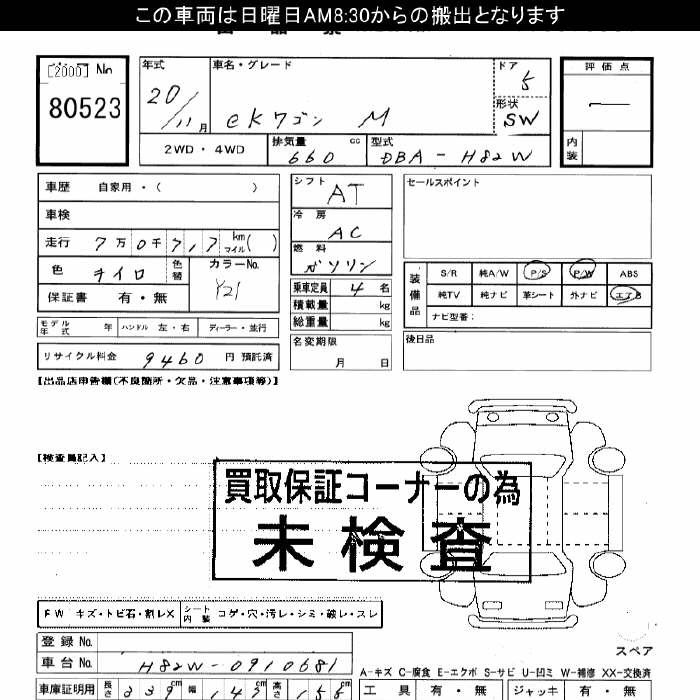 この車両は日曜日AM8:30からの搬出となります
[2000] No
80523
年式 20/11月
車名・グレード eKワゴン M
ドア 5
形状 SW
評価点 —
内装
2WD・4WD
排気量 660 cc
型式 DBA-H82W
車歴 自家用・( )
車検
走行 7万0千717 km マイル( )
色 キイロ 色替 カラーNo. Y21
保証書 有・無
モデル年式 年 ハンドル 左・右 ディーラー・並行
リサイクル料金 9460 円 預託済
シフト AT
冷房 AC
燃料 ガソリン
乗車定員 4 名
積載量 kg
総重量 kg
名変期限 月 日
セールスポイント
装備品
S/R 純A/W P/S P/W ABS
純TV 純ナビ 革シート 外ナビ エアB
ナビ型番:
後日品
【出品店申告欄(不良箇所・欠品・注意事項等)】
【検査員記入】
買取保証コーナーの為
未検査
FW キズ・トビ石・割レX シート内装 コゲ・穴・汚レ・シミ・破レ・スレ
登録No.
車台No. H82W-0910681
スペア
A-キズ C-腐食 E-エクボ S-サビ U-凹ミ W-補修 XX-交換済
車庫証明用 長さ 339cm 幅 147cm 高さ 155cm
工具 有・無 ジャッキ 有・無